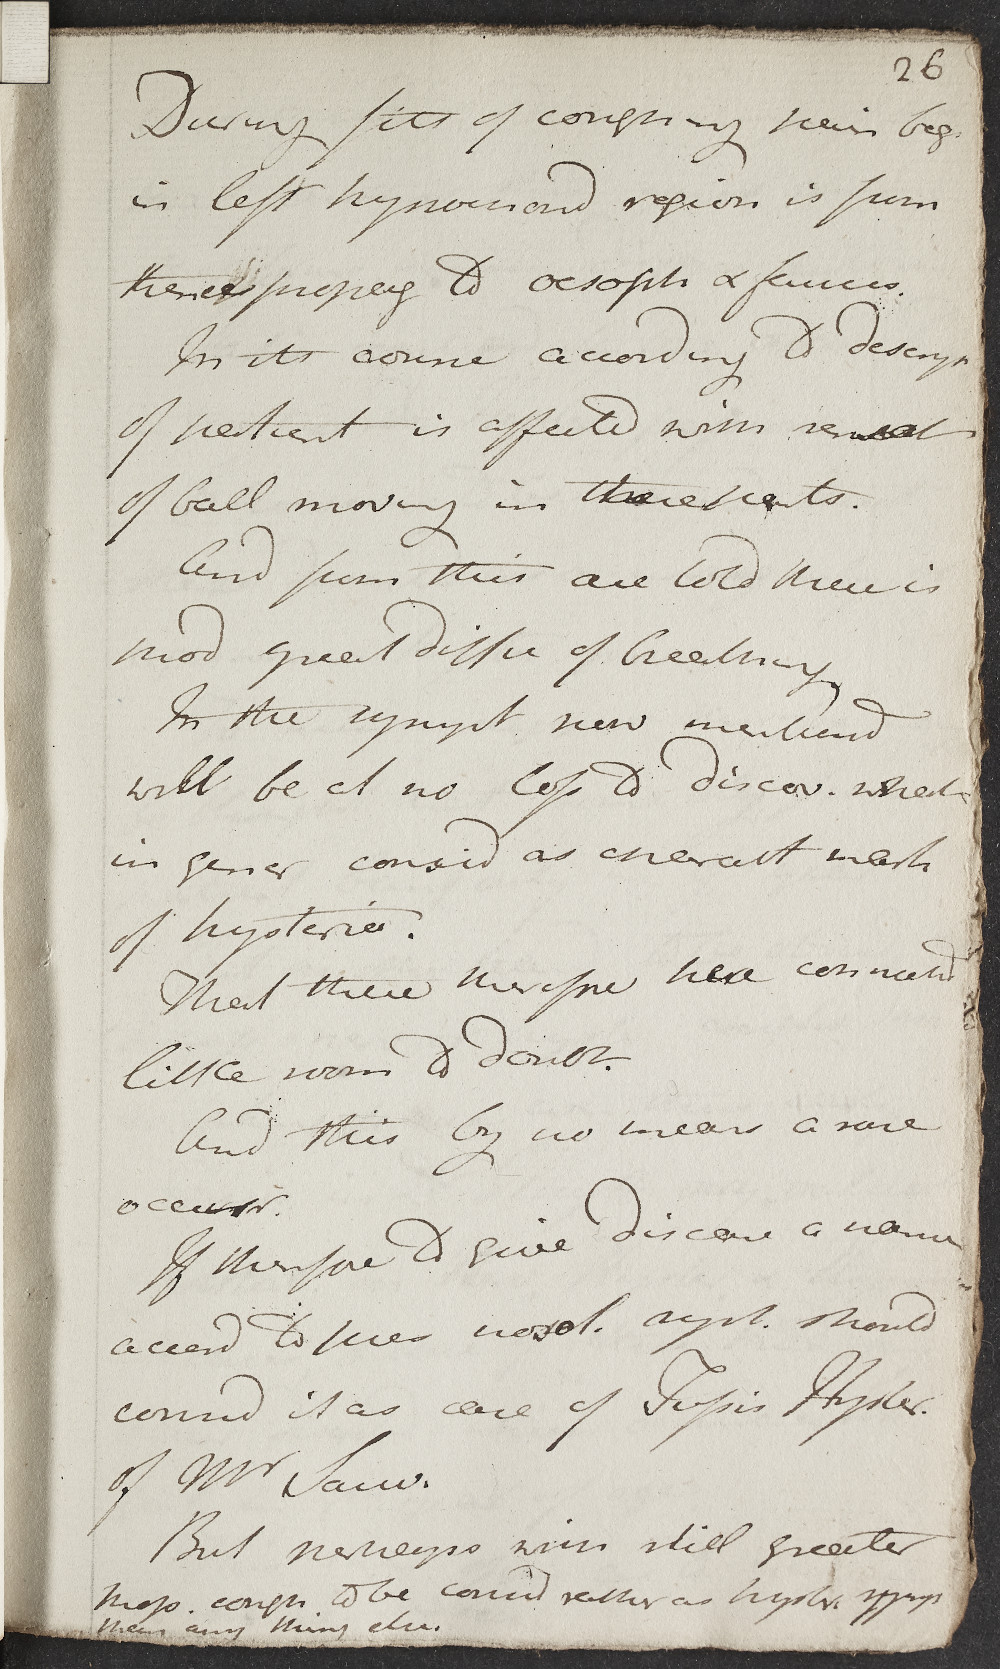 26
During fits of coughing pain beg.
in left hypocoond region is from
thence propag to oesoph & fauces.
In its course according to descrip
of patient is affected with sensat
of ball moving in these parts.
And from this are told there is
mod great diffic of breathing
In the sympt now mentiond
will be at no loss to discov. what
in gener consid as charact mark
of hysteria.
That these therefore here connectd
little room to doubt.
And this by no means a rare
occurr.
If therefore to give disease a name
accord to pres nosol. syst. should
considd it as case of Tussis Hyster.
of Mr Sauv.
But perhaps with still greater
cough to be considd rather as hyster. sympt
than any thing else.